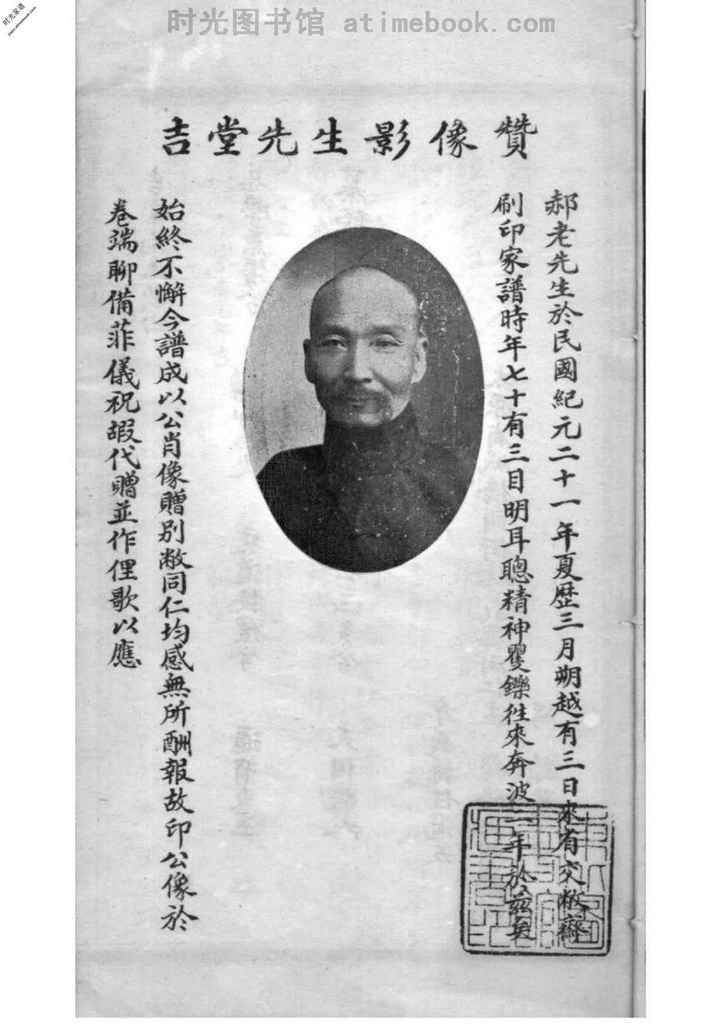 时光图书馆 atimebook.com
时光家谱
吉堂先生影像贊
郝老先生於民國紀元二十一年夏歷三月朔越有三日來省交敝齋
刷印家譜時年七十有三目明耳聰精神矍鑠徃來奔波一年於茲矣
始終不懈今譜成以公肖像贈別敝同仁均感無所酬報故印公像於
卷端聊備菲儀祝嘏代贈並作俚歌以應